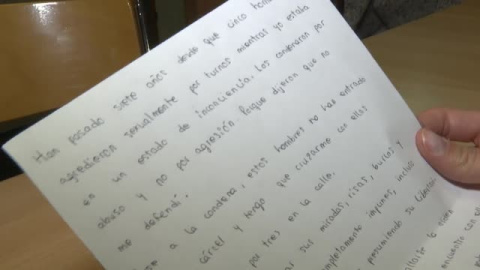 Han pasado siete años desde que cinco
agredieron sexualmente por turnos mientras yo estaba
en un estado de inconsciencia. Los condenaron por
abuso y no por agresión porque dijeron que no
me defendí.
a la condena, estos hombres no han entrado
cárcel y tengo que cruzarme con ellos
por tres en la calle.
sus miradas, risas, burlas y
completamente impunes, incluso
su